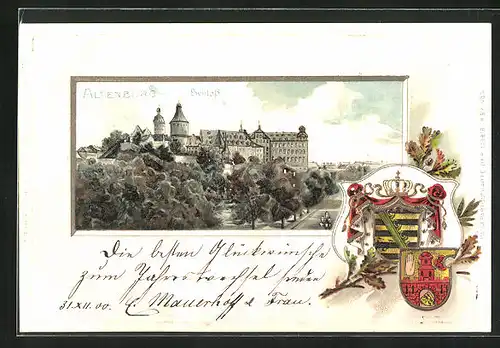 ALTENBURG Schloß
Die besten Glückwünsche
zum Jahreswechsel
31.XII.00. E. Mauerhoff & Frau.